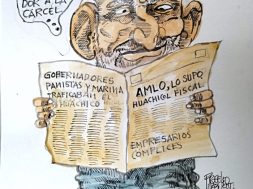 DOR A LA
CARCEL
GOBERNADORES
PANISTAS Y MARINA
TRAFICABAN EL
HUACHICO
AMLO, LO SUPO
HUACHICOL FISCAL
EMPRESARIOS
COMPLICES